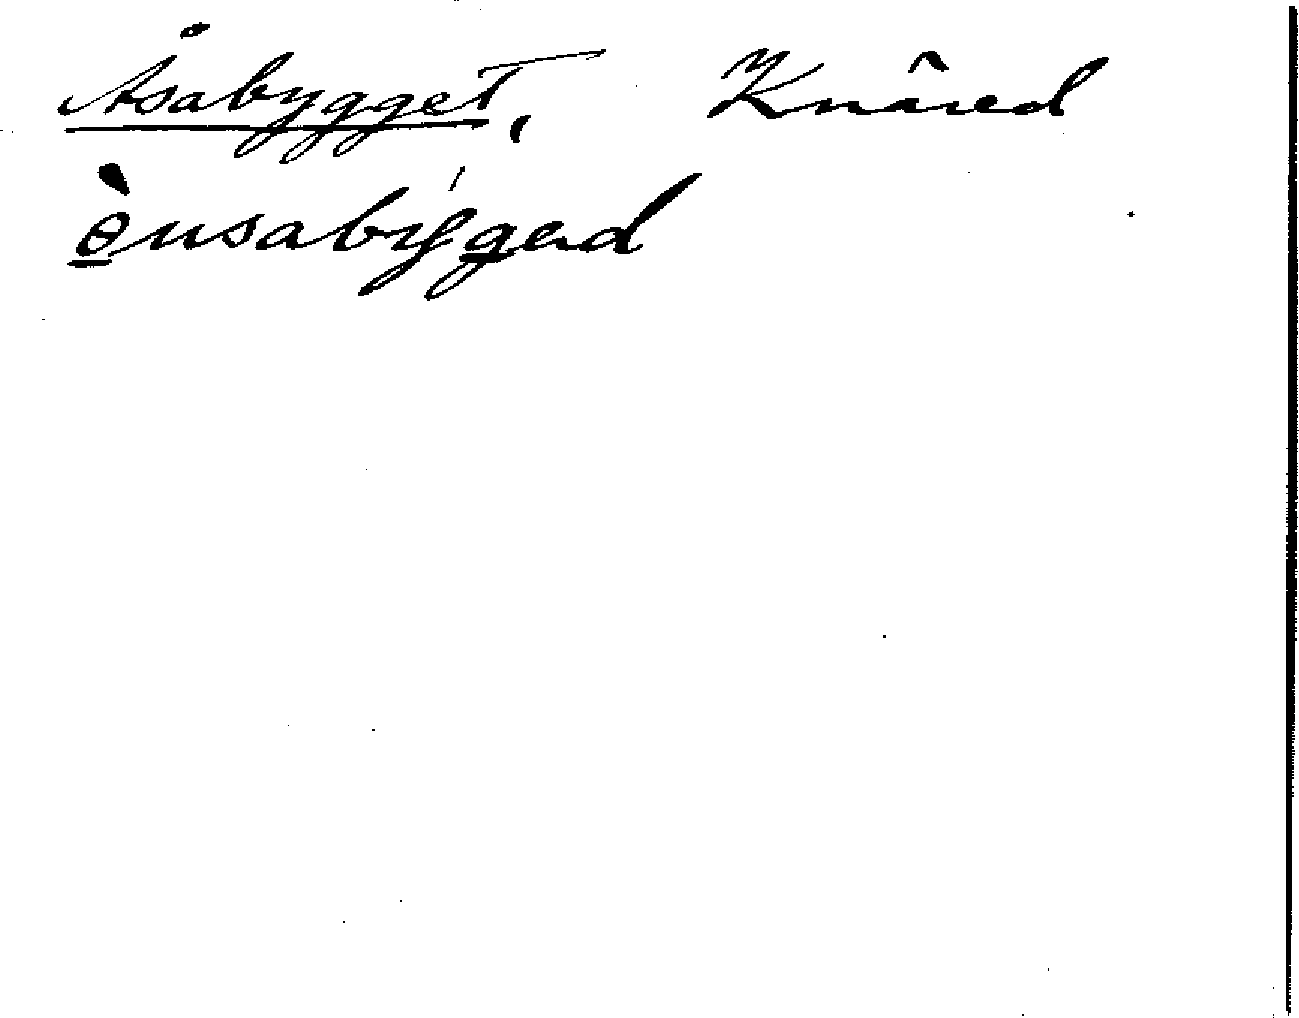 Åsabygget, Knäred
ɵ̀usabýgəd